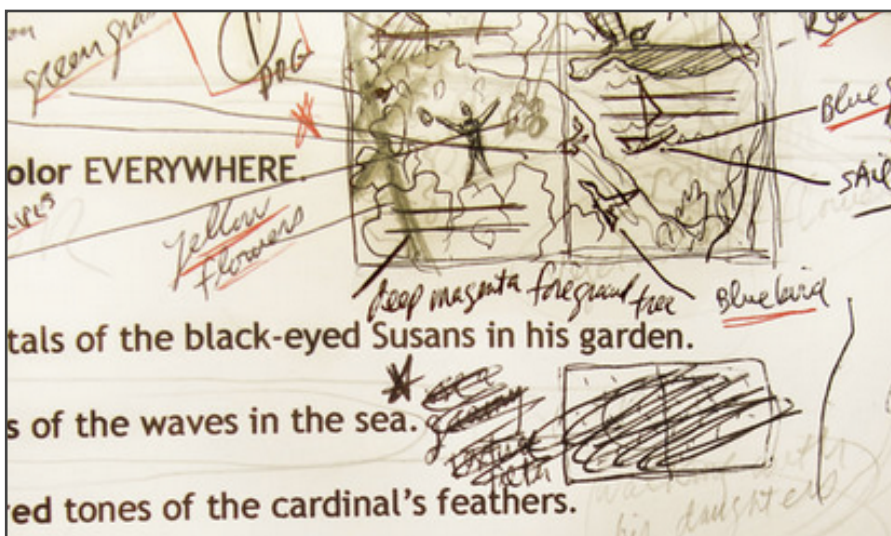 green gra
DOG
Blue
SAIL
olor EVERYWHERE.
Yellow
Flowers
deep magenta foreground tree
Bluebird
tals of the black-eyed Susans in his garden.
s of the waves in the sea.
texture
red tones of the cardinal's feathers.
walking with
his daughters